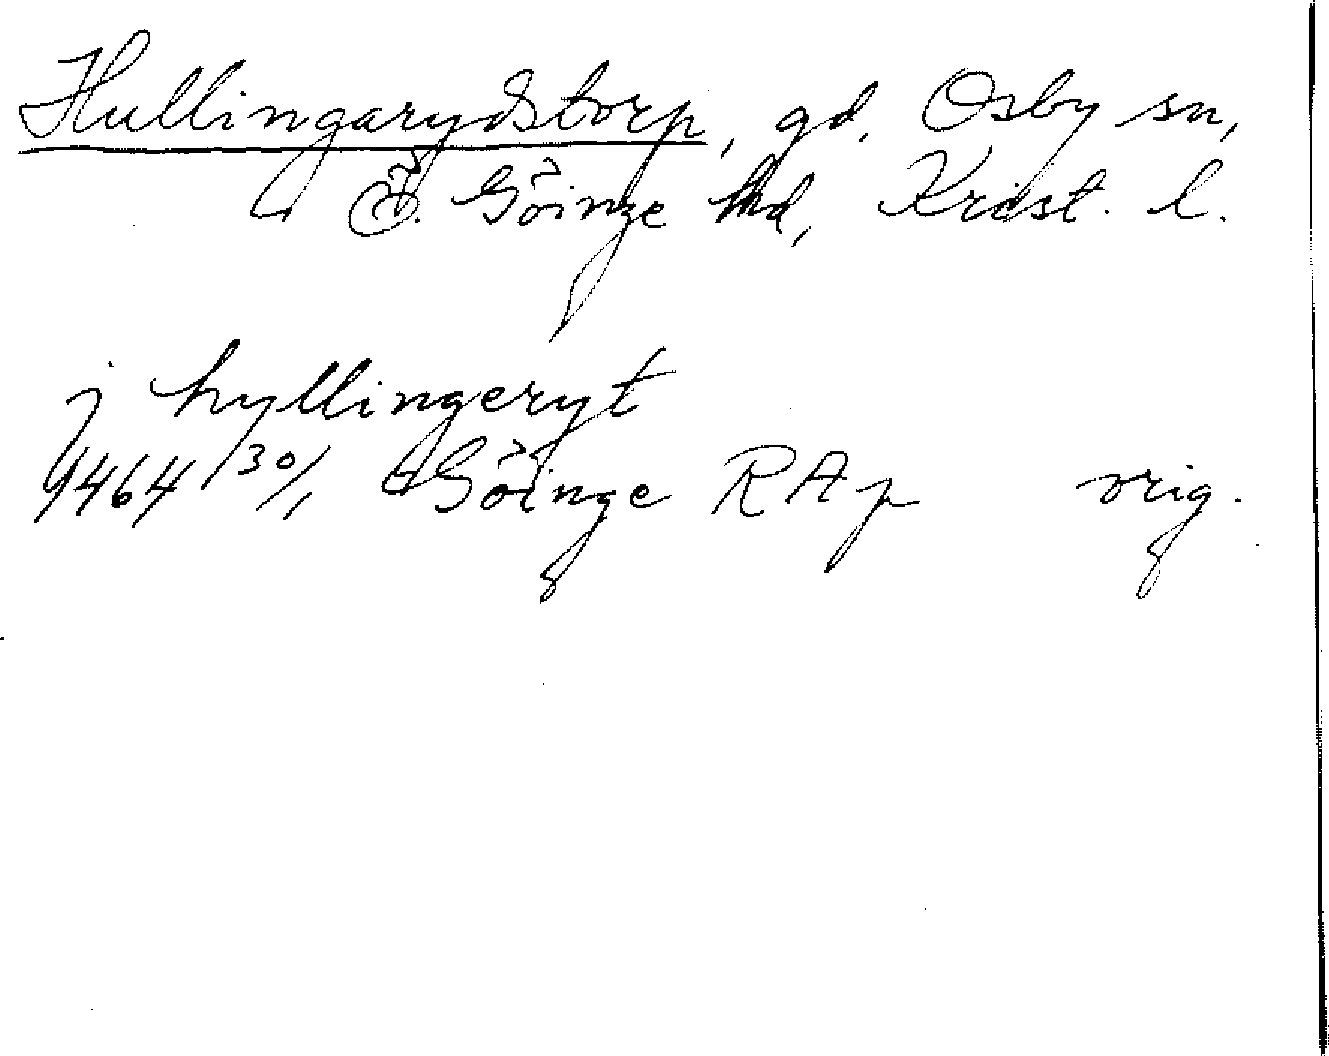 Hullingarydstorp, gd, Osby sn,
Ö. Göinge hd, Krist. l.
j hyllingeryt
1464 30/1 Göinge RAp orig.